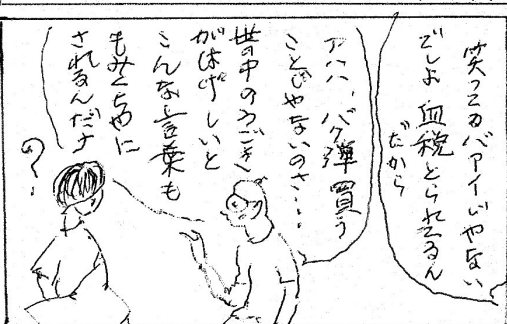 笑ってるバアイじゃない
でしょ 血税とられてるん
だから
アハハ、バク弾買う
ことじゃないのさ…
世の中のうごき
がはげしいと
こんな言葉も
もみくちゃに
されるんだナ
?